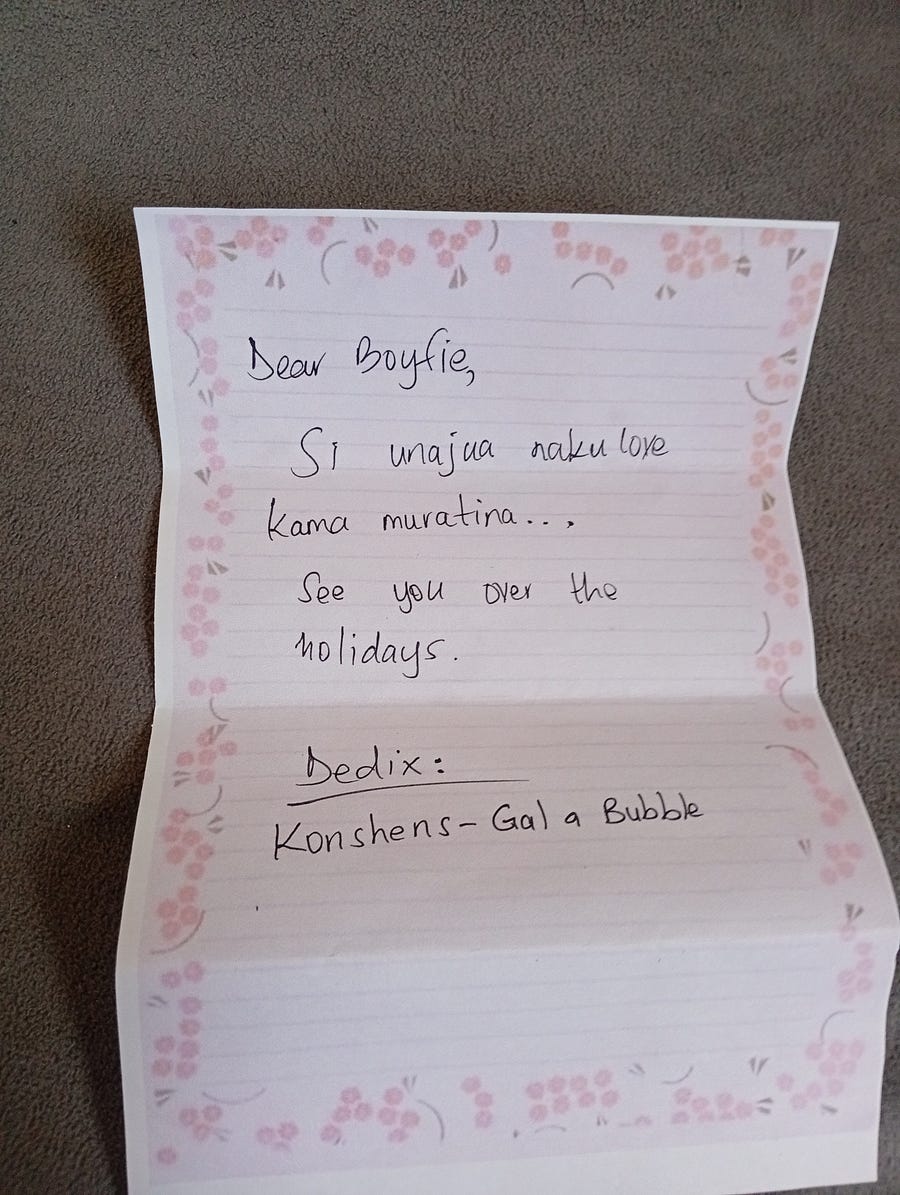 Dear Boyfie,
Si unajua naku love
kama muratina...
See you over the
holidays.
Dedix:
Konshens - Gal a Bubble